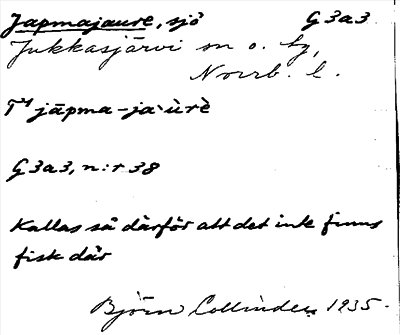 Japmajaure, sjö G3a3
Jukkasjärvi sn o. tg,
Norrb. l.
T⁴ jāpma-ja·ùrè
G3a3, n:r 38
Kallas så därför att det inte finns
fisk där
Björn Collinder, 1935.